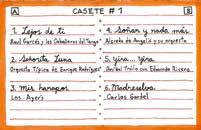 A
CASETE # 1
B
1. Lejos de ti
Raúl Garcés y los Caballeros del Tango
2. Señorita Luna
Orquesta Típica de Enrique Rodríguez
3. Mis harapos
Los Ayers
4. Soñar y nada más
Alfredo de Angelis y su orquesta
5. Yira... Yira
Aníbal Troilo con Edmundo Rivero
6. Madreselva
Carlos Gardel